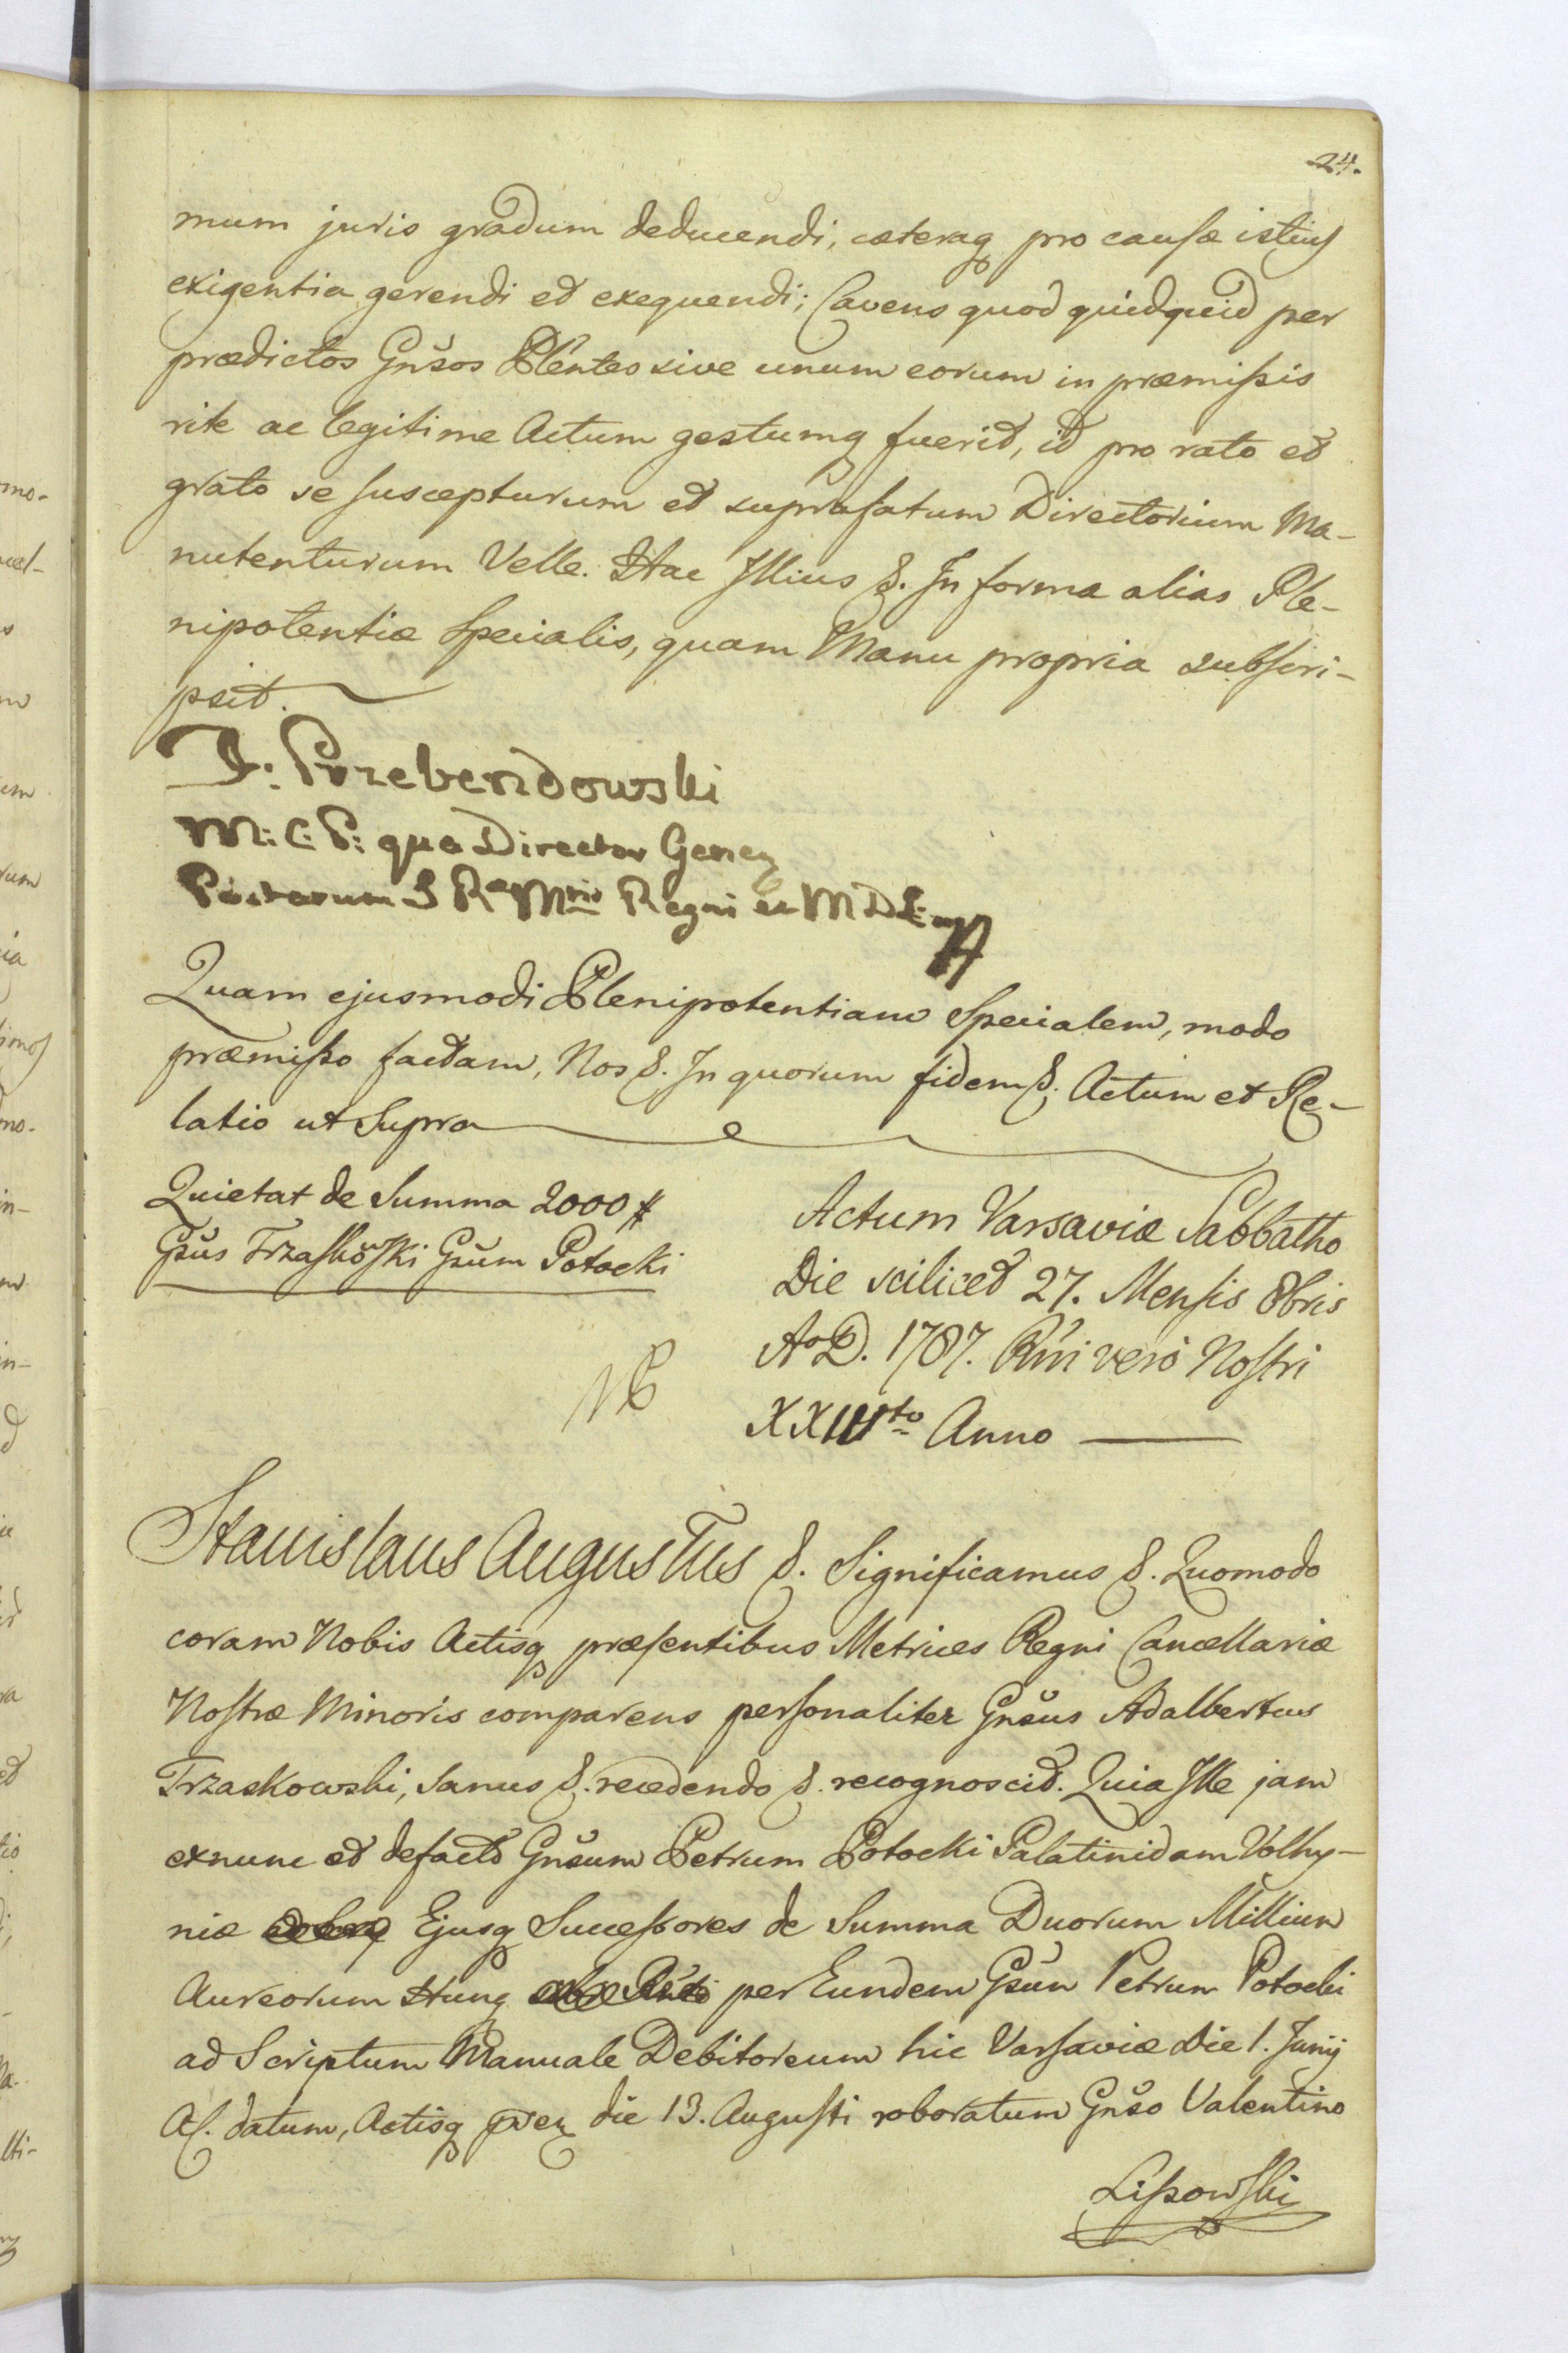 24.
mum juris gradum deducendi, cæteraq pro causæ istius
exigentia gerendi et exequendi; Cavens quod quidquid per
prædictos Gnsos Plentes sive unum eorum in præmissis
rite ac legitime Actum gestumq fuerit, id pro rato et
grato se suscepturum et suprafatum Directorium Ma-
nutenturum Velle. Hac Illius &. In forma alias Ple-
nipotentiæ Specialis, quam Manu propria subscri-
psit.
J: Przebendowski
M: C: P: qua Director Gener
Postarum S Rae Mtis Regni et M D L: mp
Quam ejusmodi Plenipotentiam Specialem, modo
præmisso factam, Nos &. In quorum fidem &. Actum et Re-
latio ut Supra
Quietat de Summa 2000 #
Gsus Trzaskowski Gsum Potocki
Actum Varsaviæ Sabbatho
Die scilicet 27. Mensis 8bris
Ao D. 1787. Rni vero Nostri
XXIVto Anno
Stanislaus Augustus &. Significamus &. Quomodo
coram Nobis Actisq præsentibus Metrices Regni Cancellariæ
Nostræ Minoris comparens personaliter Gnsus Adalbertus
Trzaskowski, sanus &. recedendo &. recognoscit. Quia Ille jam
exnunc et defacto Gnsum Petrum Potocki Palatinidam Volhy-
niæ Ejusq Successores de Summa Duorum Millium
Aureorum Hung per Eundem Gsum Petrum Potocki
ad Scriptum Manuale Debitoreum hic Varsaviæ die 1. Junij
A. datum, Actisq die 13. Augusti roboratum Gnso Valentino
Lissowski